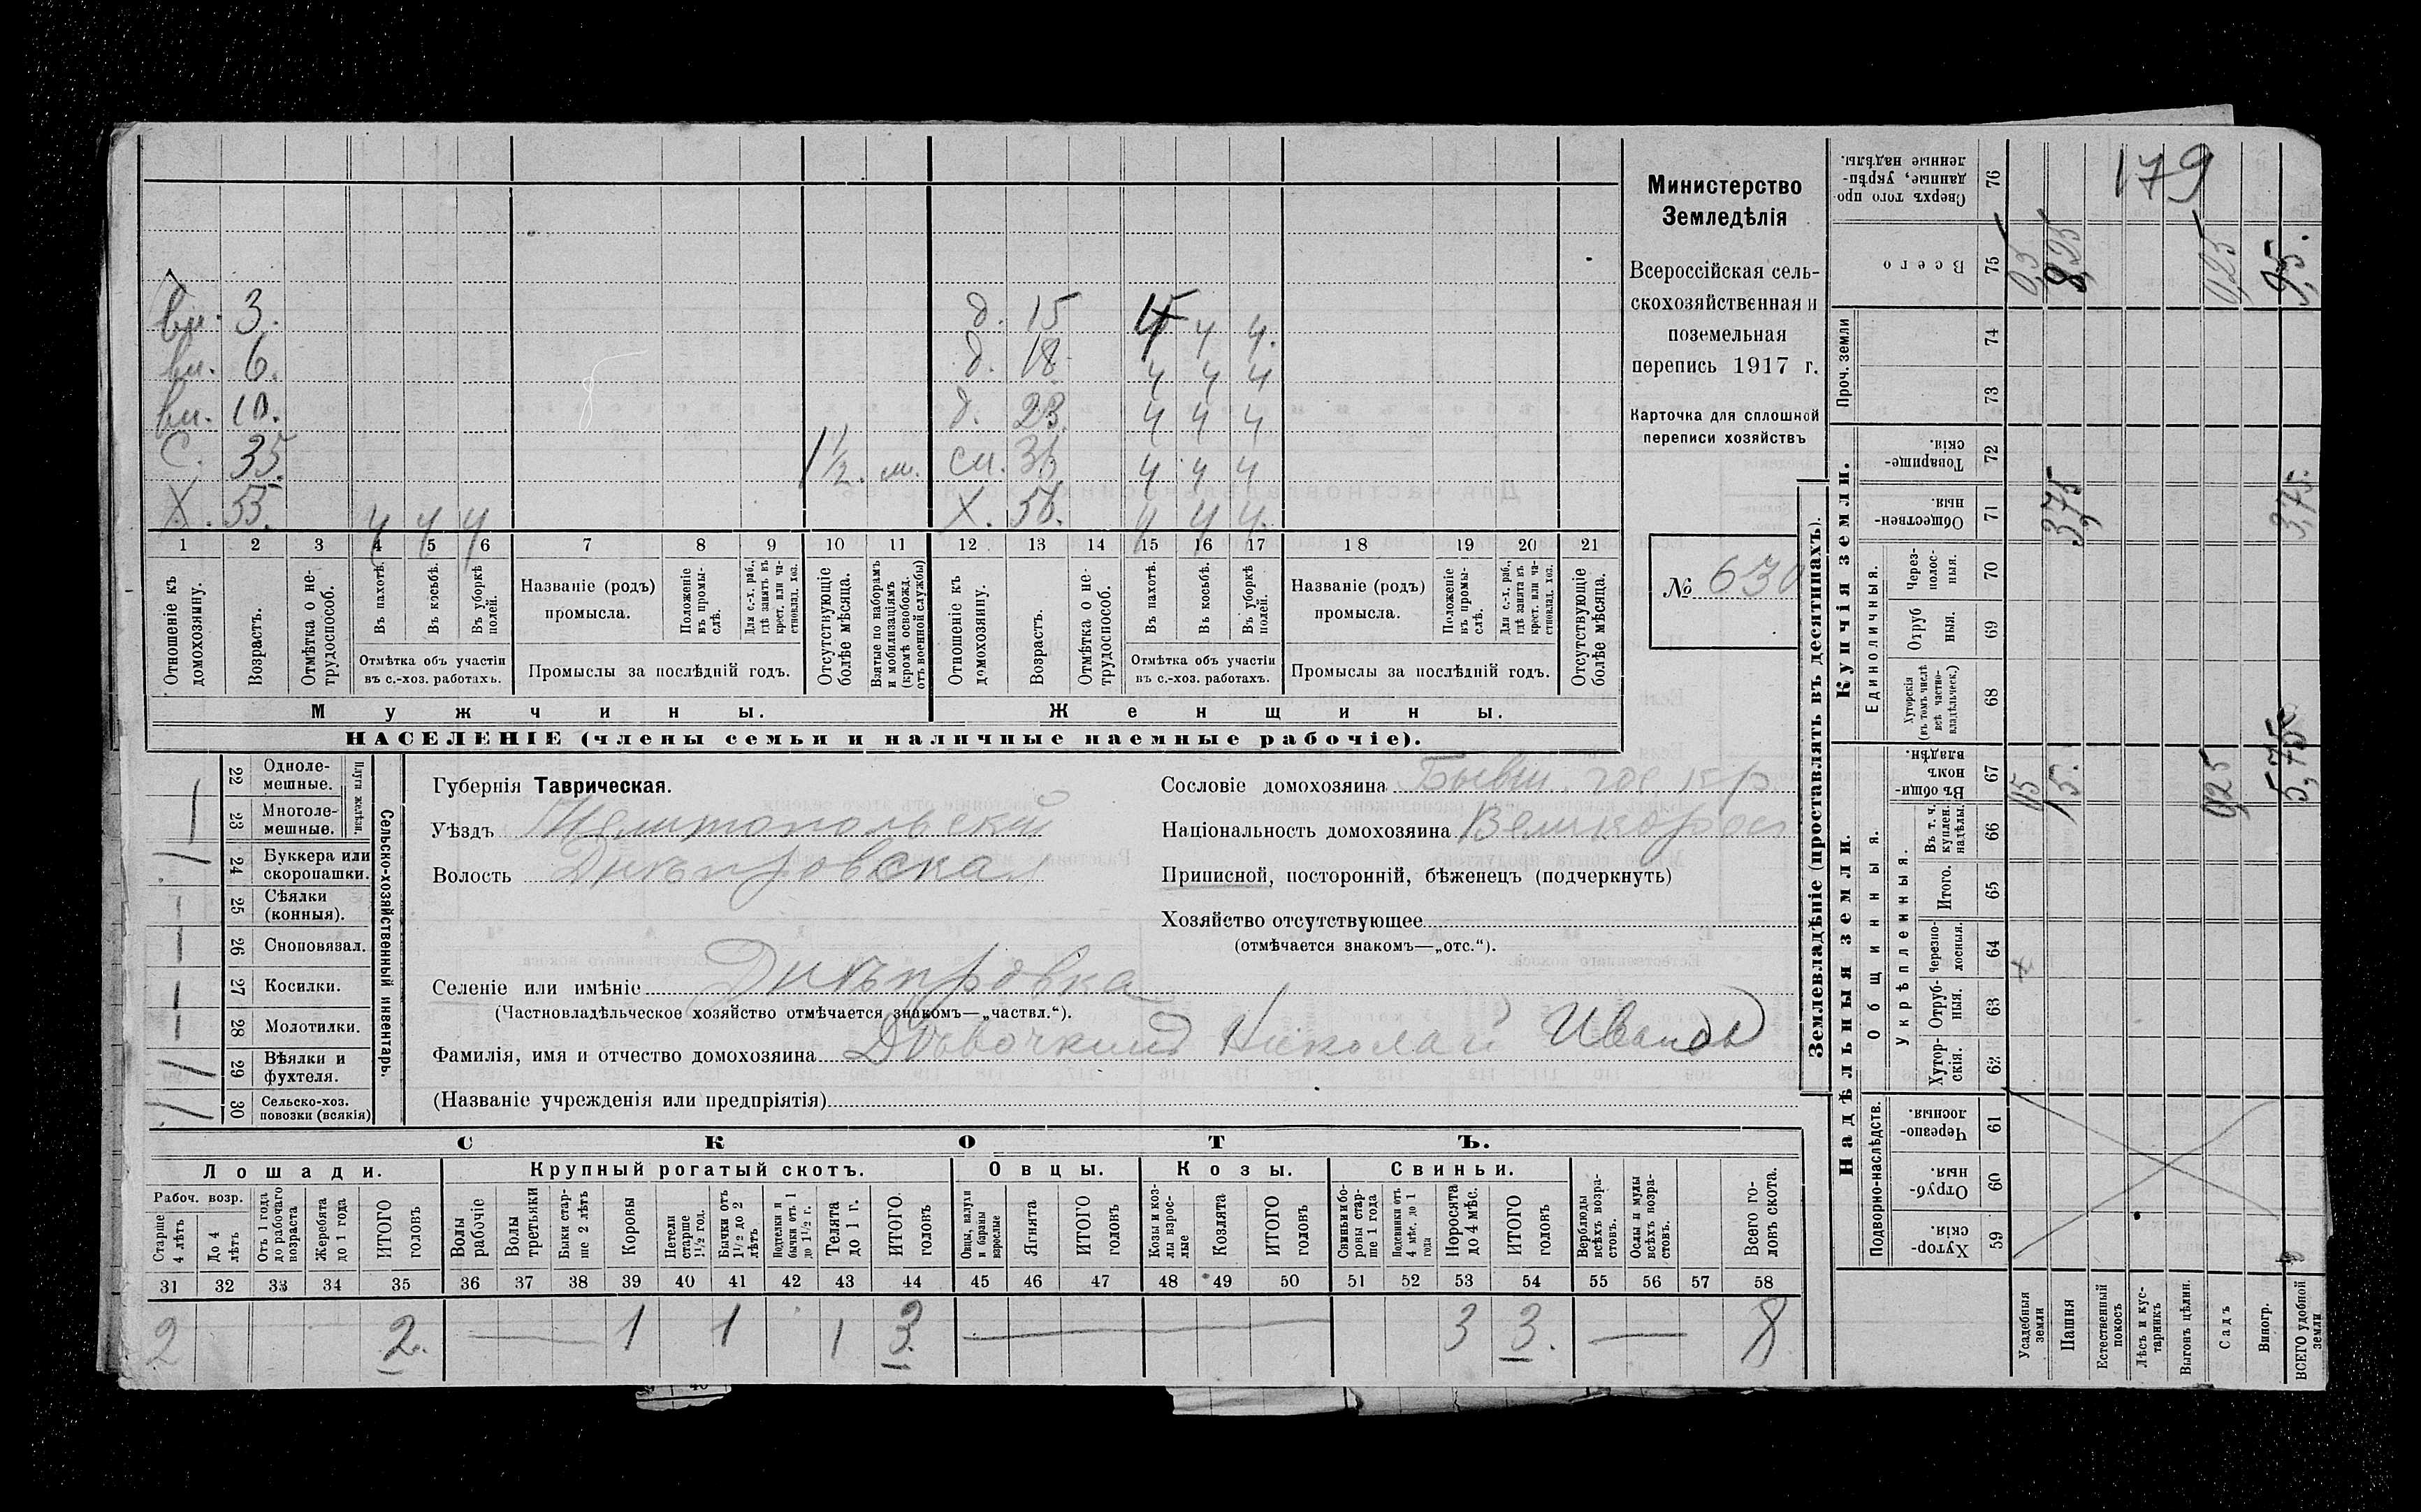 Министерство
Земледѣлія
Всероссійская сель-
скохозяйственная и
поземельная
перепись 1917 г.
Карточка для сплошной
переписи хозяйствъ
№ 630
179
вн. 3. д. 15 4 4 4.
вн. 6. д. 18 4 4 4
вн. 10. д. 23 4 4 4
С. 35. 1 1/2. м. сн. 4 4 4
Х. 55. 4 4 4 Х. 4 4 4.
1 2 3 4 5 6 7 8 9 10 11 12 13 14 15 16 17 18 19 20 21
Отношеніе къ домохозяину.
Возрастъ.
Отмѣтка о не-трудоспособ.
Въ пахотѣ.
Въ косьбѣ.
Въ уборкѣ полей.
Отмѣтка объ участіи въ с.-хоз. работахъ.
Названіе (родъ) промысла.
Положеніе въ промы-слѣ.
Для с.-х. раб., гдѣ занятъ въ крест. или ча-стновлад. хоз.
Промыслы за послѣдній годъ.
Отсутствующіе болѣе мѣсяца.
Взятые по наборамъ и мобилизаціямъ (кромѣ освобожд. отъ военной службы)
Отношеніе къ домохозяину.
Возрастъ.
Отмѣтка о не-трудоспособ.
Въ пахотѣ.
Въ косьбѣ.
Въ уборкѣ полей.
Отмѣтка объ участіи въ с.-хоз. работахъ.
Названіе (родъ) промысла.
Положеніе въ промы-слѣ.
Для с.-х. раб., гдѣ занятъ въ крест. или ча-стновлад. хоз.
Промыслы за послѣдній годъ.
Отсутствующіе болѣе мѣсяца.
Мужчины. Женщины.
НАСЕЛЕНІЕ (члены семьи и наличные наемные рабочіе).
Сельско-хозяйственный инвентарь.
Плуги желѣзн.
22 Одноле-мешные.
23 Многоле-мешные. 1
24 Буккера или скоропашки. 1
25 Сѣялки (конныя). 1
26 Сноповязал. 1
27 Косилки. 1
28 Молотилки. 1
29 Вѣялки и фухтеля.
30 Сельско-хоз. повозки (всякія)
Губернія Таврическая.
Уѣздъ Мелитопольский
Волость Днѣпровская
Сословіе домохозяина Бывш. гос кр.
Національность домохозяина Великорос
Приписной, посторонній, бѣженецъ (подчеркнуть)
Хозяйство отсутствующее
(отмѣчается знакомъ—„отс.“).
Селеніе или имѣніе Днѣпровка
(Частновладѣльческое хозяйство отмѣчается знакомъ—„частвл.“).
Фамилія, имя и отчество домохозяина Николай Иванов
(Названіе учрежденія или предпріятія)
СКОТЪ.
Лошади. Крупный рогатый скотъ. Овцы. Козы. Свиньи.
Рабоч. возр.
Старше 4 лѣтъ
До 4 лѣтъ
Отъ 1 года до рабочаго возраста
Жеребята до 1 года
ИТОГО головъ
Волы рабочіе
Волы третьяки
Быки стар-ше 2 лѣтъ
Коровы
Нетели старше 1½ год.
Бычки отъ 1½ до 2 лѣтъ
Подтелки и бычки отъ 1 до 1½ г.
Телята до 1 г.
ИТОГО головъ
Овцы, валухи и бараны взрослые
Ягнята
ИТОГО головъ
Козы и коз-лы взрос-лые
Козлята
ИТОГО головъ
Свиньи и бо-ровы стар-ше 1 года
Подсвинки отъ 4 мѣс. до 1 года
Поросята до 4 мѣс.
ИТОГО головъ
Верблюды всѣхъ возра-стовъ.
Ослы и мулы всѣхъ возра-стовъ.
Всего го-ловъ скота.
31 32 33 34 35 36 37 38 39 40 41 42 43 44 45 46 47 48 49 50 51 52 53 54 55 56 57 58
2 2. 1 1 1 3. 3 3. 8
Землевладѣніе (проставлять въ десятинахъ).
Надѣльныя земли. Купчія земли. Проч. земли
Подворно-наслѣдств.
Общинныя.
Укрѣпленныя.
Единоличныя.
Хутор-скія. 59
Отруб-ныя. 60
Черезпо-лосныя. 61
Хутор-скія. 62
Отруб-ныя. 63
Черезпо-лосныя. 64
Итого. 65
Въ т. ч. куплен. надѣлы. 66
Въ общин-номъ владѣн. 67
Хуторскія (въ томъ числѣ всѣ частно-владѣльческ.) 68
Отруб ныя. 69
Через-полос-ныя. 70
Обществен-ныя. 71
Товарище-скія. 72
73
74
Всего 75
Сверхъ того про-данные, укрѣп-ленные надѣлы. 76
Усадебныя земли 0,5 0,5
Пашня 5. 3,75 8,25
Естественный покосъ
Лѣсъ и кус-тарникъ
Выгонъ цѣлин.
Садъ 0,25 0,25
Виногр.
ВСЕГО удобной земли 5,75 3,75. 9,5.